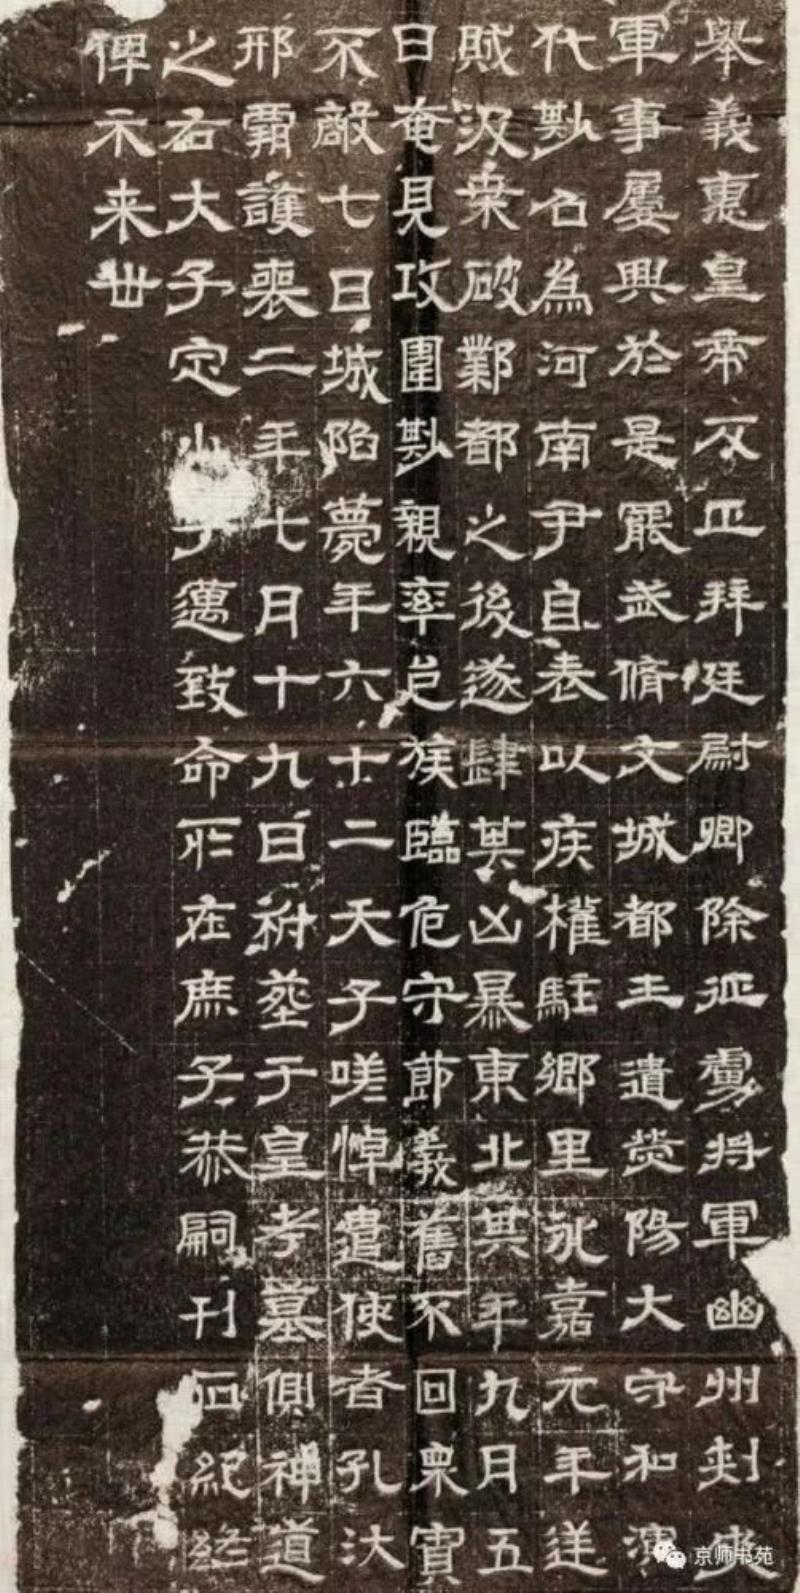 舉義惠皇帝反正拜廷尉卿除征虜將軍幽州刺史
軍事屢興於是罷武脩文城都王遺熒陽大守和演
代尠石為河南尹自表以疾權駐鄉里永嘉元年逆
賊汲桒破鄴都之後遂肆其凶暴東北其年九月五
日奄見攻圍尠親率邑族臨危守節義舊不回衆寡
不敵七日城陷薨年六十二天子嗟悼遣使者孔汏
邢霸護喪二年七月十九日祔塟于皇考墓側神道
之右大子定小子邁致命所在庶子恭嗣刊石紀終
俾示来世
京师书苑